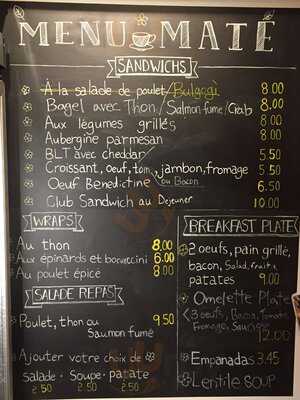 MENU MATE
SANDWICHS
À la salade de poulet/Bulgogi 8.00
Bagel avec Thon/Salmon fume/Crab 8.00
Aux légumes grillés 8.00
Aubergine parmesan 8.00
BLT avec cheddar 5.50
Croissant, oeuf, tom, jambon, fromage 5.50
ou Bacon
Oeuf Benedictine 6.50
Club Sandwich au Dejeuner 10.00
WRAPS
Au thon 8.00
Aux épinards et bocuccini 6.00
Au poulet épice 8.00
SALADE REPAS
Poulet, thon ou 9.50
Saumon fumé
Ajouter votre choix de
Salade · Soupe · patate
2.50 2.50 2.50
BREAKFAST PLATE
2 oeufs, pain grillé,
bacon, Salad, fruit,
patates 9.00
Omelette Plate
< 3 oeufs, Bacon, Tomates
Fromages, Saucisse
12.00
Empanadas 3.45
Lentille SOUP